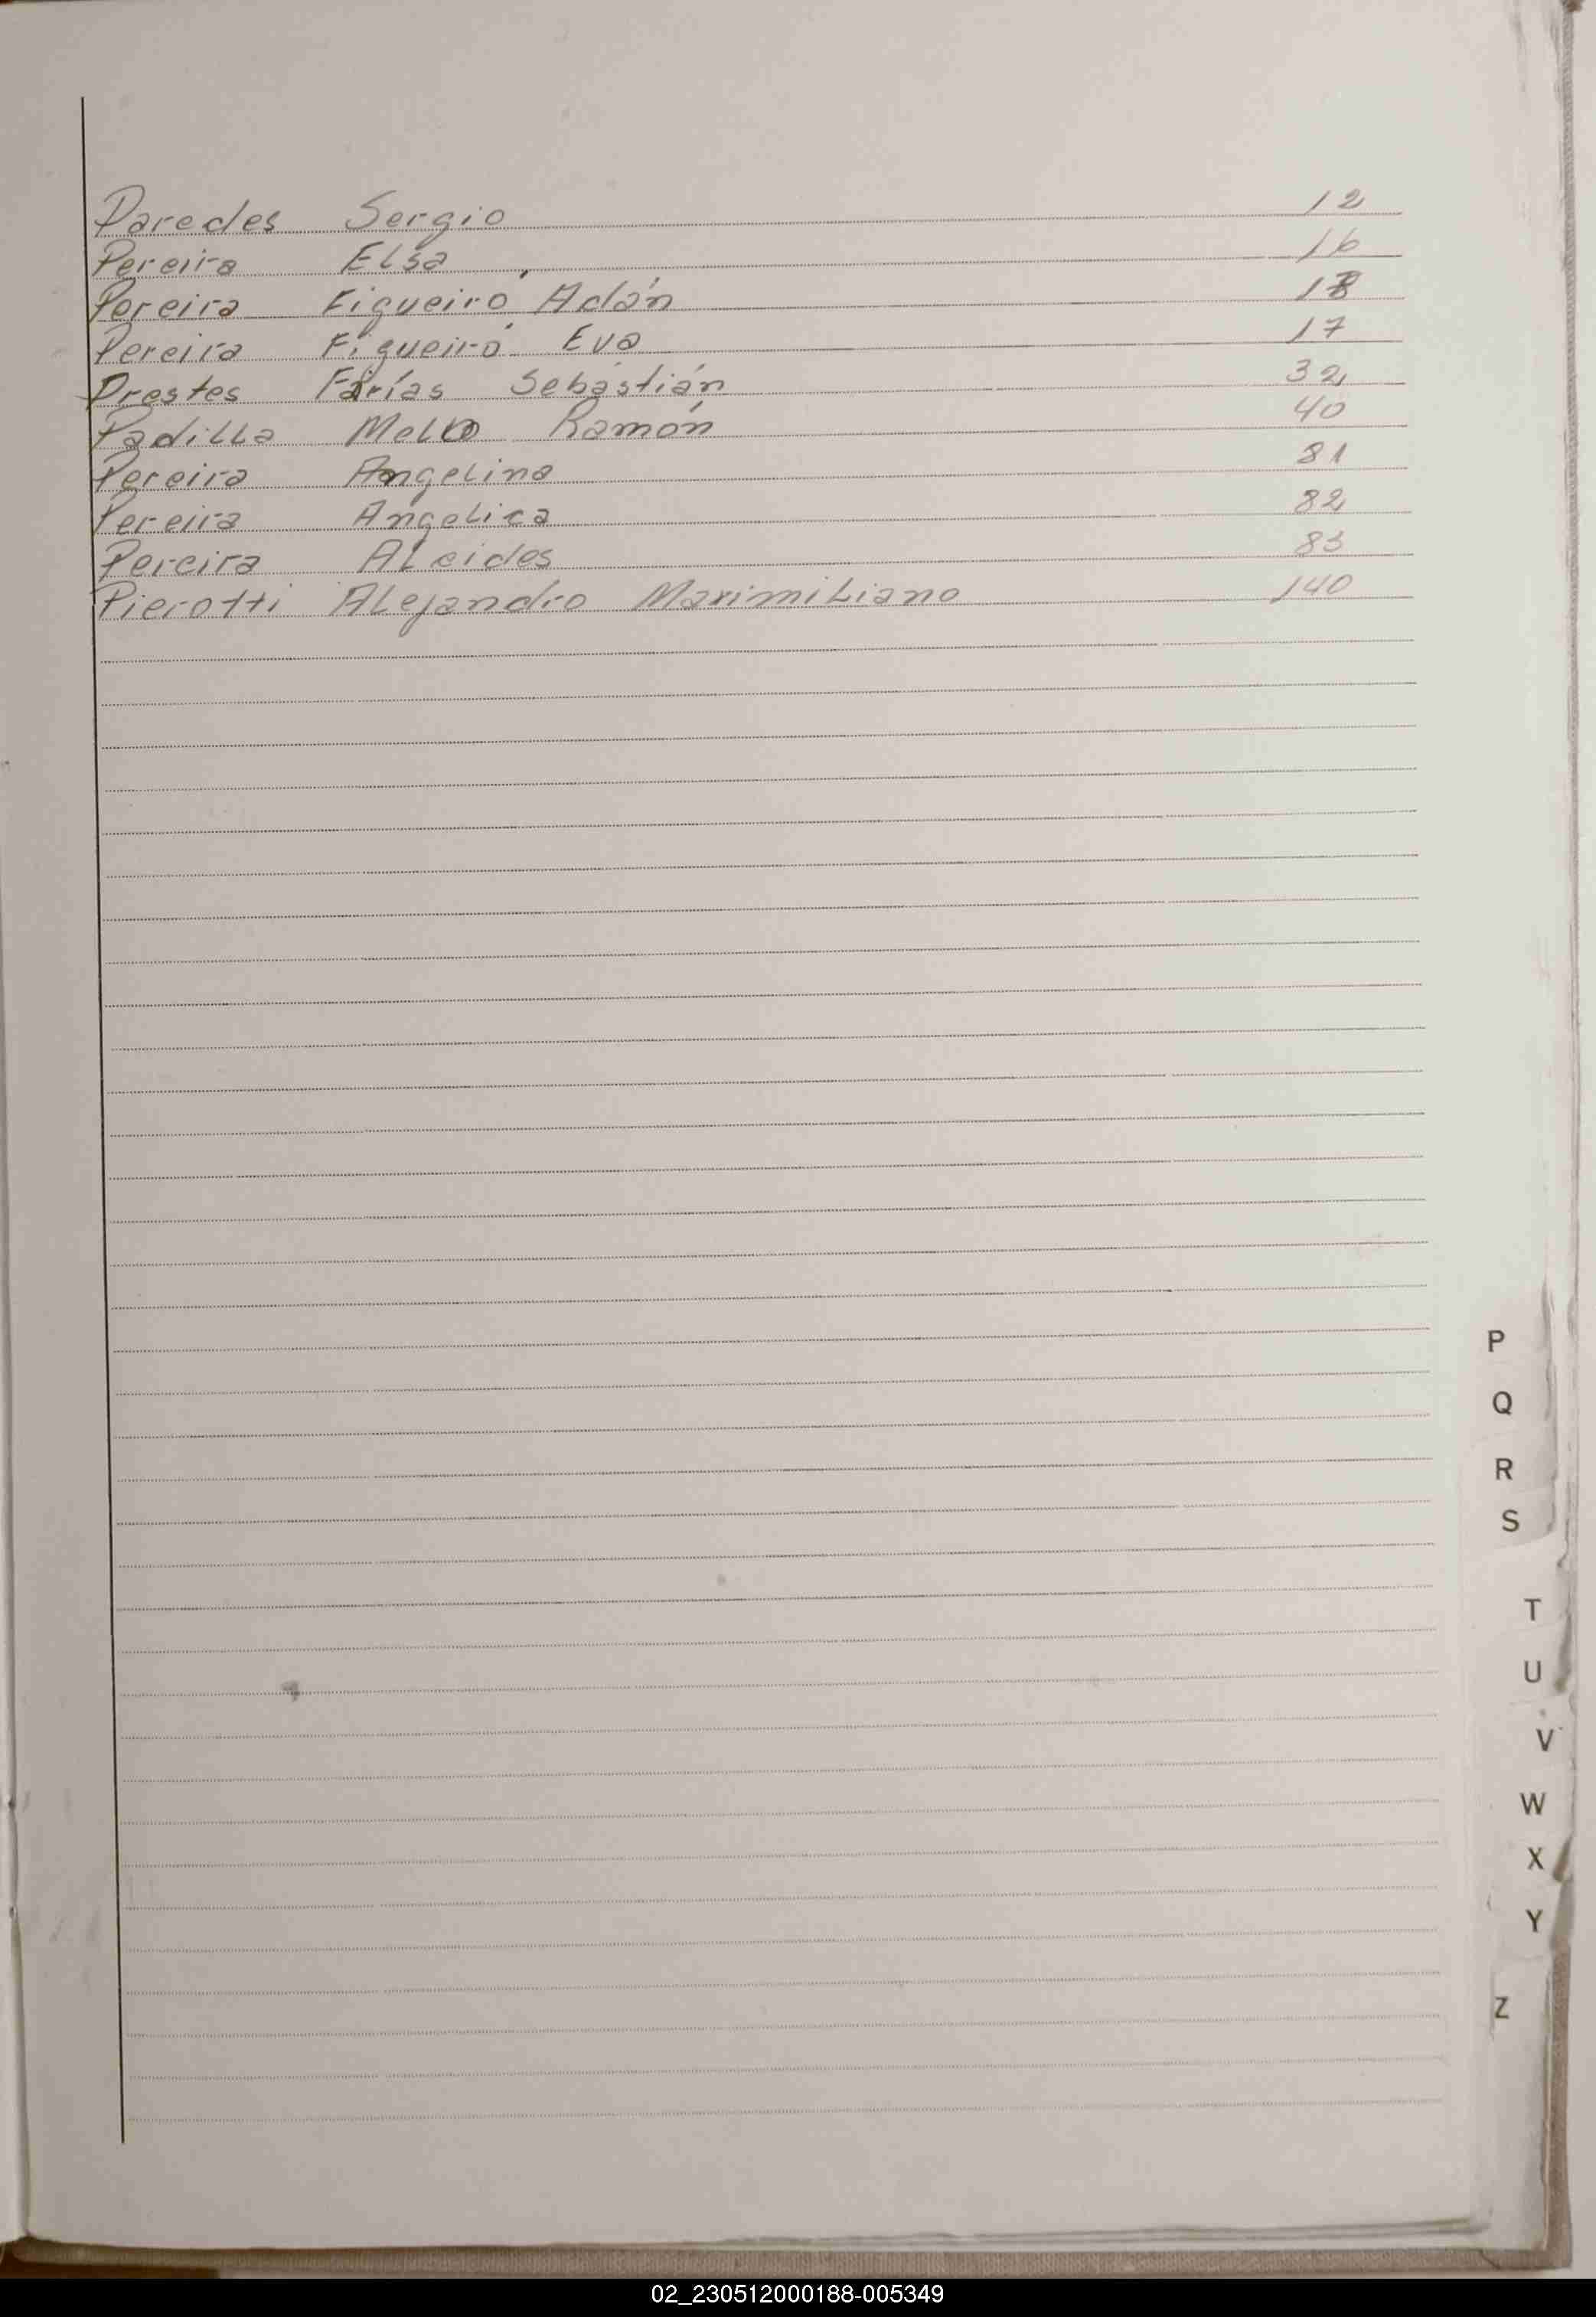 Paredes Sergio 12
Pereira Elsa 16
Pereira Figueiró Adán 18
Pereira Figueiró Eva 17
Prestes Farías Sebastián 32
Padilla Mello Ramón 40
Pereira Angelina 81
Pereira Angelica 82
Pereira Alcides 83
Pierotti Alejandro Maximiliano 140
P
Q
R
S
T
U
V
W
X
Y
Z
02_230512000188-005349